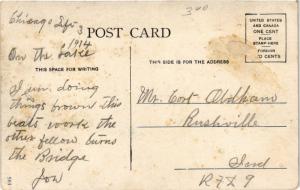 300
Chicago Sep 3
1914
POST CARD
UNITED STATES
AND CANADA
ONE CENT
PLACE
STAMP HERE
FOREIGN
TWO CENTS
On the
THIS SPACE FOR WRITING
THIS SIDE IS FOR THE ADDRESS
I um doing
things brown this
beats work the
other fellow burns
the Bridge
Jon
Mr. Cort Oldham
Rushville
Ind
R F D 9